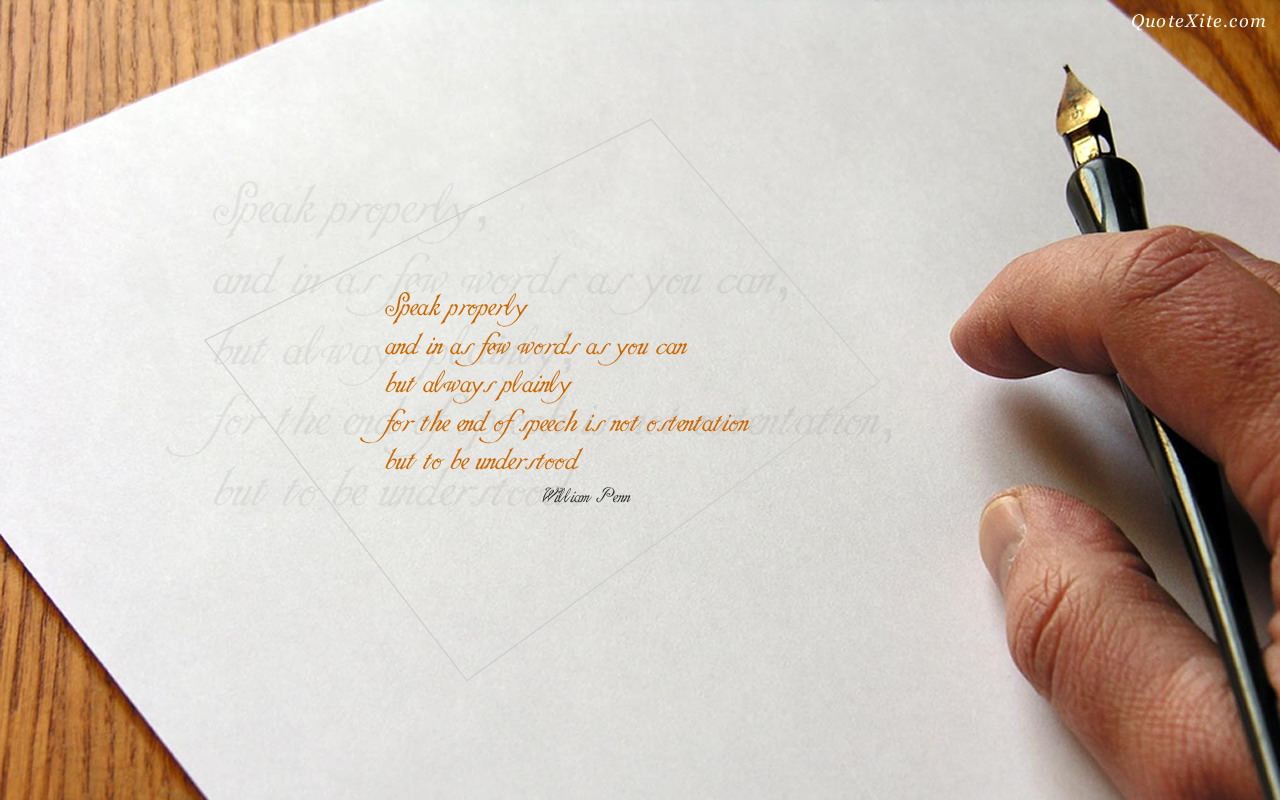 QuoteXite.com
Speak properly,
and in as few words as you can,
but always plainly,
for the end of speech is not ostentation,
but to be understood
Speak properly
and in as few words as you can
but always plainly
for the end of speech is not ostentation
but to be understood
William Penn